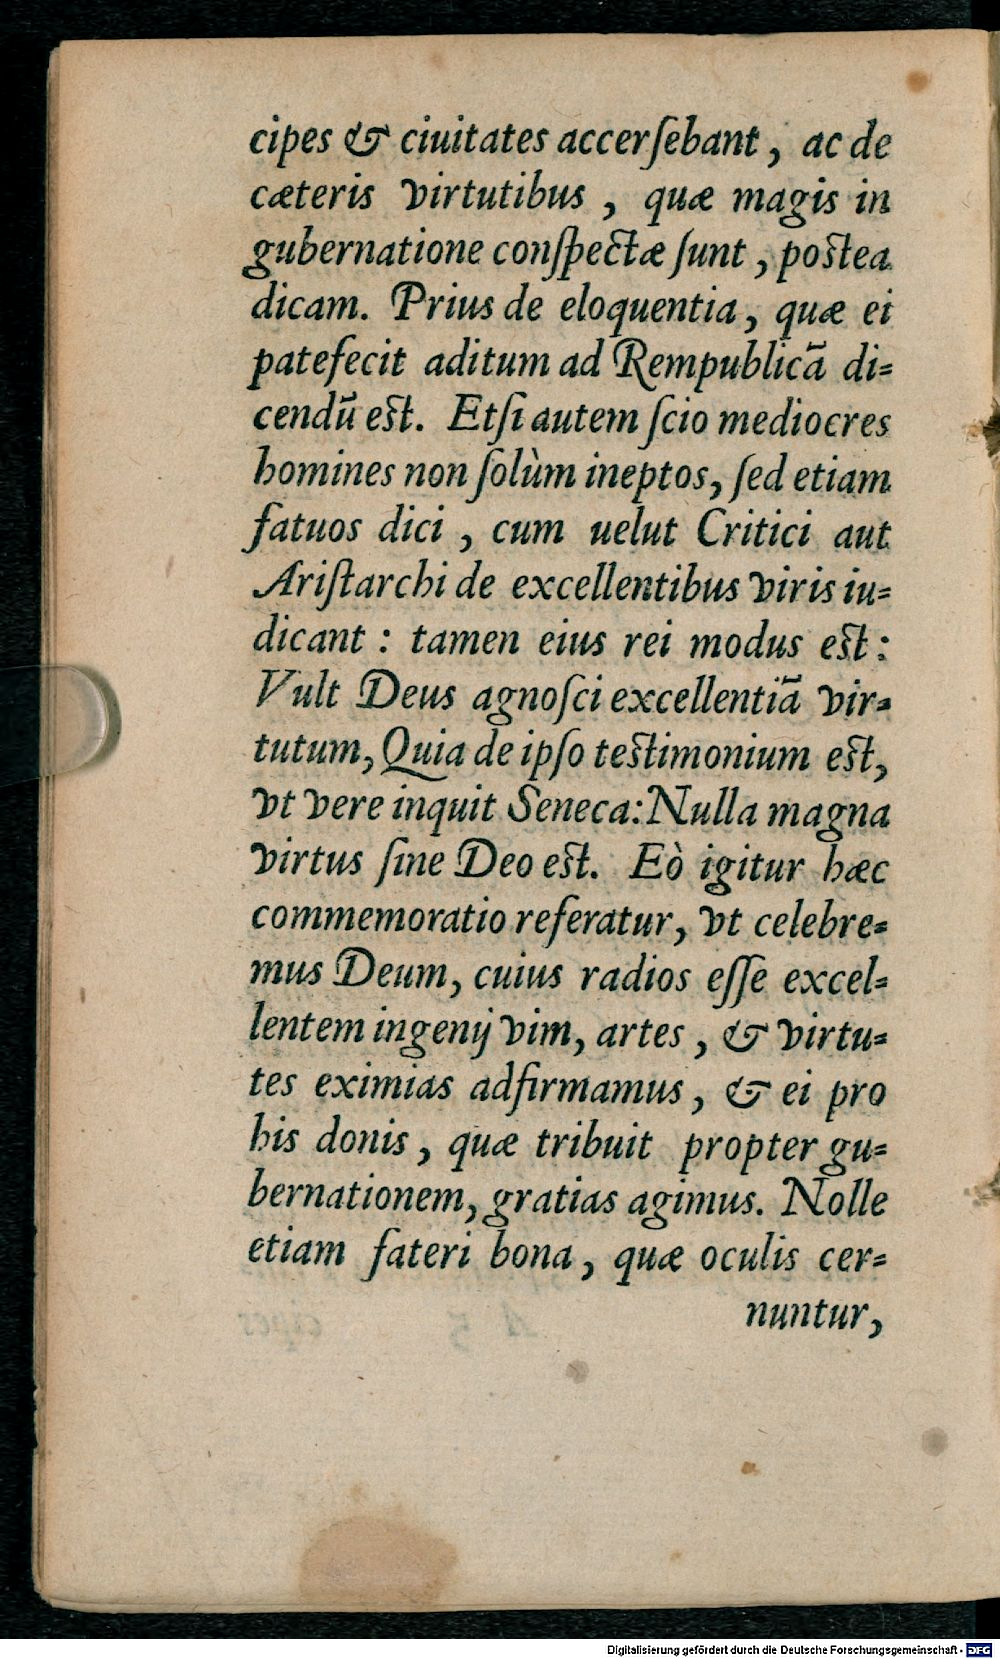 cipes & ciuitates accerſebant, ac de
cæteris virtutibus, quæ magis in
gubernatione conſpectæ ſunt, poſtea
dicam. Prius de eloquentia, quæ ei
patefecit aditum ad Rempublicā di=
cendū eſt. Etſi autem ſcio mediocres
homines non ſolùm ineptos, ſed etiam
fatuos dici, cum uelut Critici aut
Ariſtarchi de excellentibus viris iu=
dicant: tamen eius rei modus eſt:
Vult Deus agnoſci excellentiā vir=
tutum, Quia de ipſo teſtimonium eſt,
vt vere inquit Seneca: Nulla magna
virtus ſine Deo eſt. Eò igitur hæc
commemoratio referatur, vt celebre=
mus Deum, cuius radios eſſe excel=
lentem ingenij vim, artes, & virtu=
tes eximias adfirmamus, & ei pro
his donis, quæ tribuit propter gu=
bernationem, gratias agimus. Nolle
etiam fateri bona, quæ oculis cer=
nuntur,
Digitalisierung gefördert durch die Deutsche Forschungsgemeinschaft - DFG